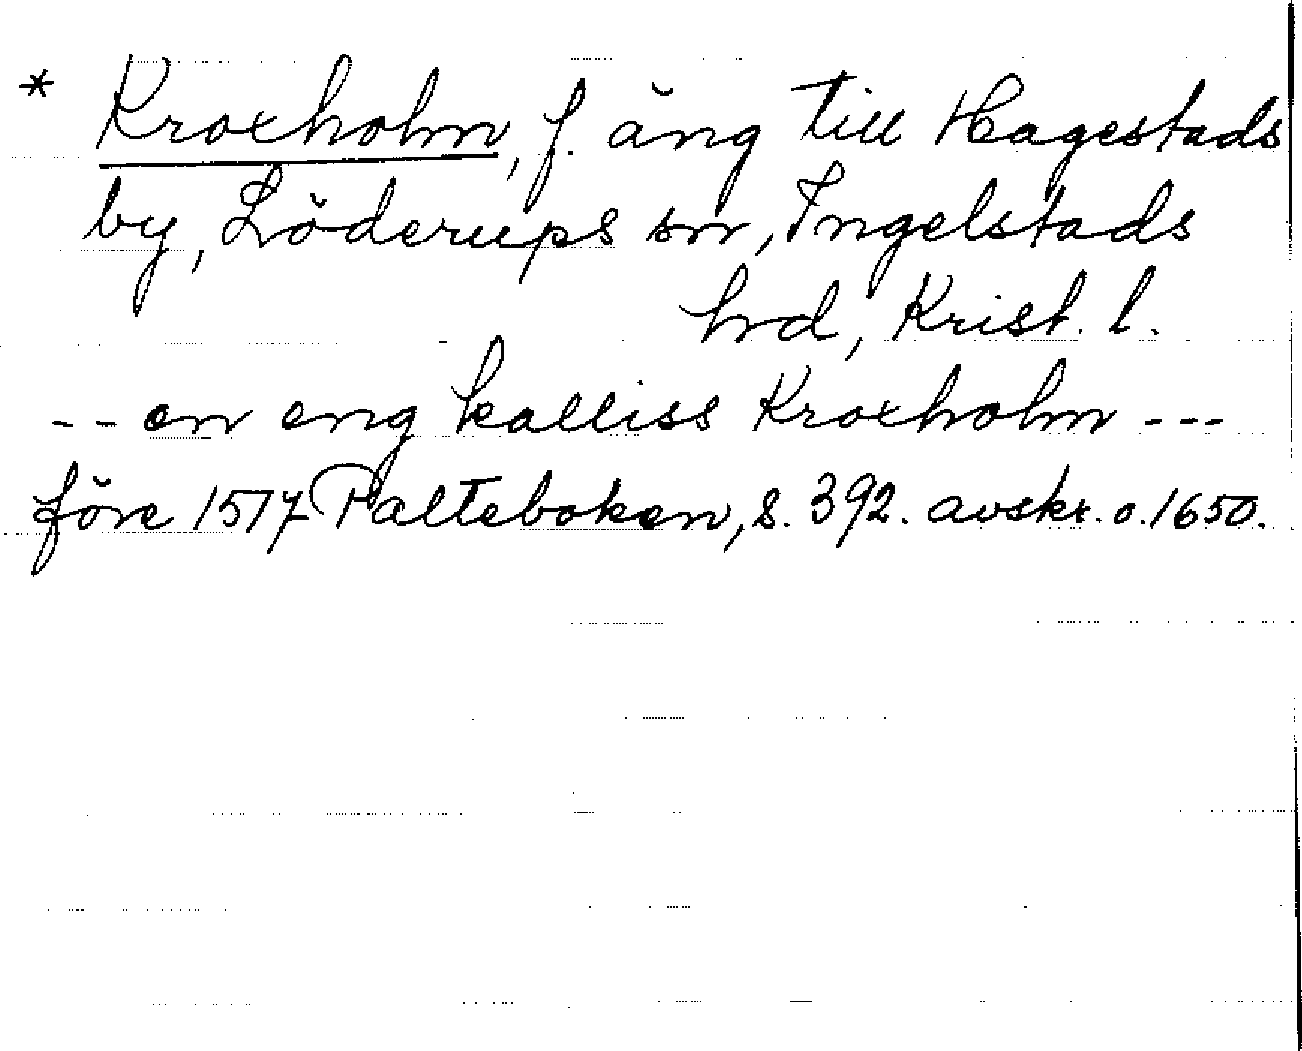 * Kroxholm, f. äng till Hagestads
by, Löderups sn, Ingelstads
hrd, Krist. l.
-- en eng kalliss Kroxholm ---
före 1517 Palteboken, s. 392. avskr. o. 1650.